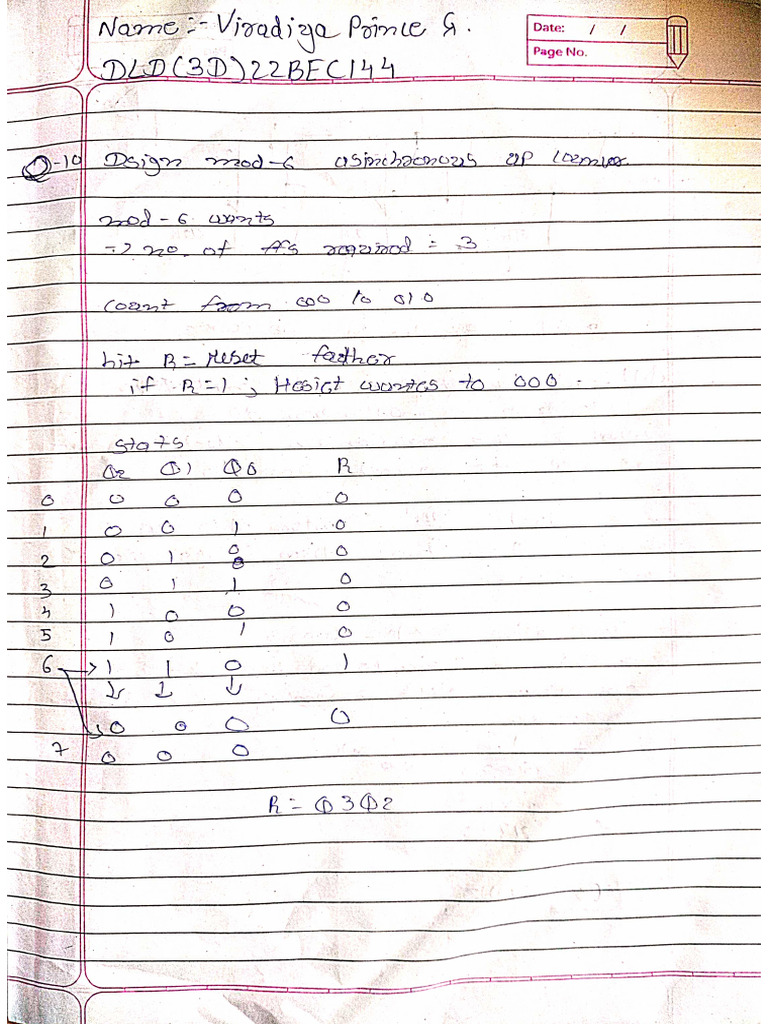 Name :- Viradiya Prince G.
Date: / /
Page No.
DLD(3D)22BEC144
Q-10 Dsign mod-6 asinchronous up counter
mod-6 counts
=> no. of ffs required = 3
count from 000 to 010
R = Reset
if R=1 ; to 000.
stats
Q2 Q1 Q0 R
0 0 0 0 0
1 0 0 1 0
2 0 1 0 0
3 0 1 1 0
4 1 0 0 0
5 1 0 1 0
6 → 1 1 0 1
↓ ↓ ↓
0 0 0 0
7 0 0 0
R = Q3Q2